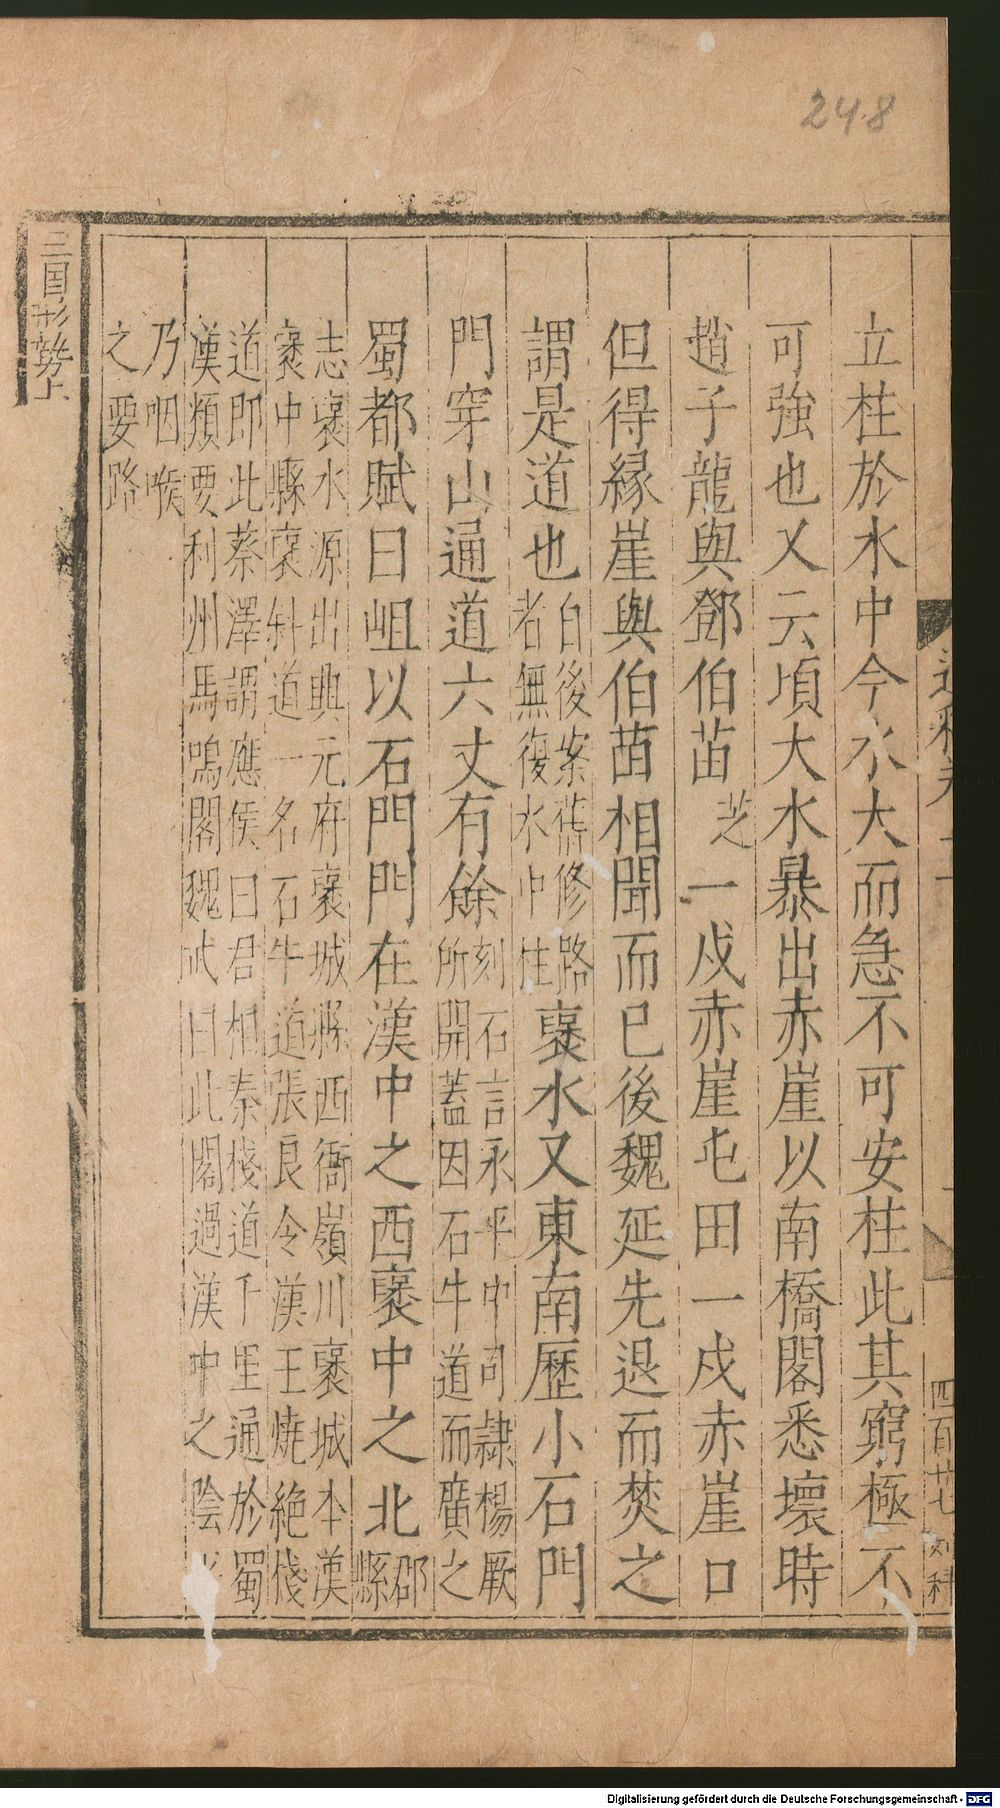 248
立柱於水中今水大而急不可安柱此其窮極不
可強也又云頃大水暴出赤崖以南橋閣悉壞時
趙子龍與鄧伯苗芝一戍赤崖屯田一戍赤崖口
但得縁崖與伯苗相聞而已後魏延先退而焚之
謂是道也自後案舊修路
者無復水中柱襃水又東南歷小石門
門穿山通道六丈有餘刻石言永平中司隸楊厥
所開蓋因石牛道而廣之
蜀都賦曰岨以石門門在漢中之西襃中之北郡
縣
志襃水源出興元府襃城縣西衙嶺川襃城本漢
襃中縣襃斜道一名石牛道張良令漢王燒絶棧
道即此蔡澤謂應侯曰君相秦棧道千里通於蜀
漢類要利州馬鳴閣魏武曰此閣過漢中之陰
乃咽喉
之要路
三国形勢上
四百廿七
Digitalisierung gefördert durch die Deutsche Forschungsgemeinschaft - DFG